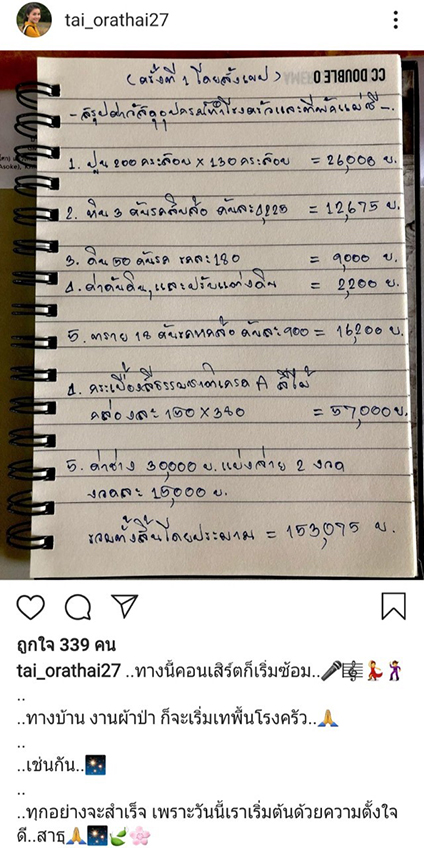 tai_orathai27
CC DOUBLE O
(ครั้งที่ 1 โดยสังเขป)
-สรุปค่าวัสดุอุปกรณ์ทำโรงครัวและที่พักแม่ชี-
1. ปูน 200 กระสอบ x 130 กระสอบ = 26,000 บ.
2. หิน 3 คันรถสิบล้อ คันละ 4,225 = 12,675 บ.
3. ดิน 50 คันรถ รถละ 180 = 9,000 บ.
4. ค่าดันดิน,และปรับแต่งดิน = 2,200 บ.
5. ทราย 18 คันรถหกล้อ คันละ 900 = 16,200 บ.
4. กระเบื้องสีธรรมชาติเกรด A สีไม้
กล่องละ 150 x 380 = 57,000 บ.
5. ค่าช่าง 30,000 บ. แบ่งจ่าย 2 งวด
งวดละ 15,000 บ.
รวมทั้งสิ้นโดยประมาณ = 153,075 บ.
ถูกใจ 339 คน
tai_orathai27 ..ทางนี้คอนเสิร์ตก็เริ่มซ้อม..🎤🎼💃🕺
..
..ทางบ้าน งานผ้าป่า ก็จะเริ่มเทพื้นโรงครัว..🙏
..
..เช่นกัน..🎇
..
..ทุกอย่างจะสำเร็จ เพราะวันนี้เราเริ่มต้นด้วยความตั้งใจ
ดี..สาธุ🙏🎇🍃🌸